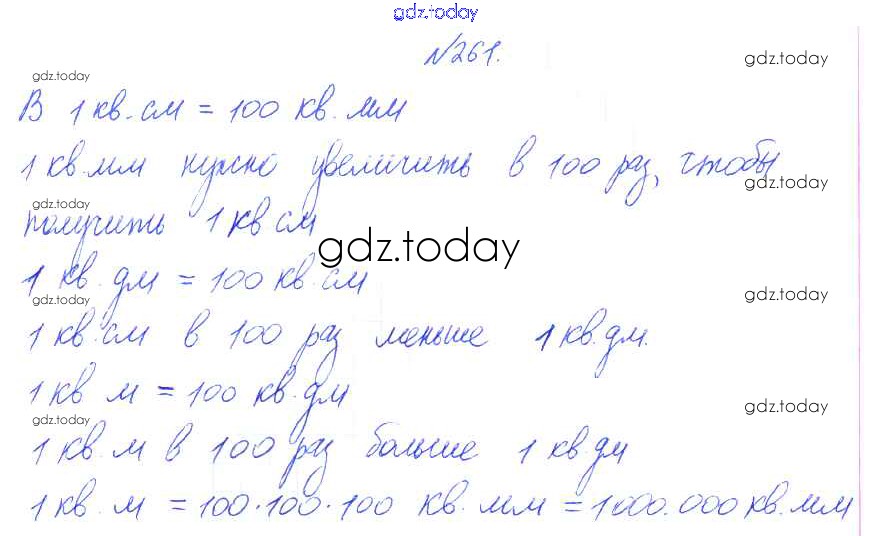 gdz.today
№261.
gdz.today
gdz.today
В 1 кв.см = 100 кв.мм
1 кв.мм нужно увеличить в 100 раз, чтобы
gdz.today
gdz.today
получить 1 кв см
gdz.today
1 кв.дм = 100 кв.см
gdz.today
gdz.today
1 кв.см в 100 раз меньше 1 кв.дм.
1 кв м = 100 кв.дм
gdz.today
gdz.today
1 кв.м в 100 раз больше 1 кв дм
1 кв.м = 100·100·100 кв.мм = 1000.000 кв.мм